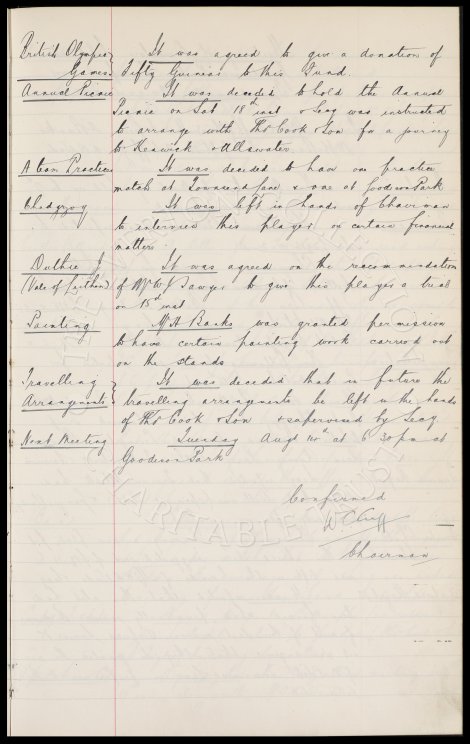 British Olympic } It was agreed to give a donation of
Games } Fifty Guineas to this Fund.
Annual Picnic It was decided to hold the Annual
Picnic on Sat 18th inst & Secy was instructed
to arrange with Thos Cook & Son for a journey
to Keswick & Ullswater
A Team Practices It was decided to have one practice
match at Townsend Lane & one at Goodison Park
Chedgzoy It was left in hands of Chairman
to interview this player on certain financial
matters.
Duthie J. It was agreed on the recommendation
(Vale of Leithen) of Mr W Sawyer to give this player a trial
on 15th inst
Painting Mr A Banks was granted permission
to have certain painting work carried out
on the stands
Travelling } It was decided that in future the
Arrangements } travelling arrangements be left in the hands
of Thos Cook & Son & supervised by Secy
Next Meeting Tuesday Augt at 6 30pm at
Goodison Park
Confirmed
W C Cuff
Chairman
CHARITABLE TRUST